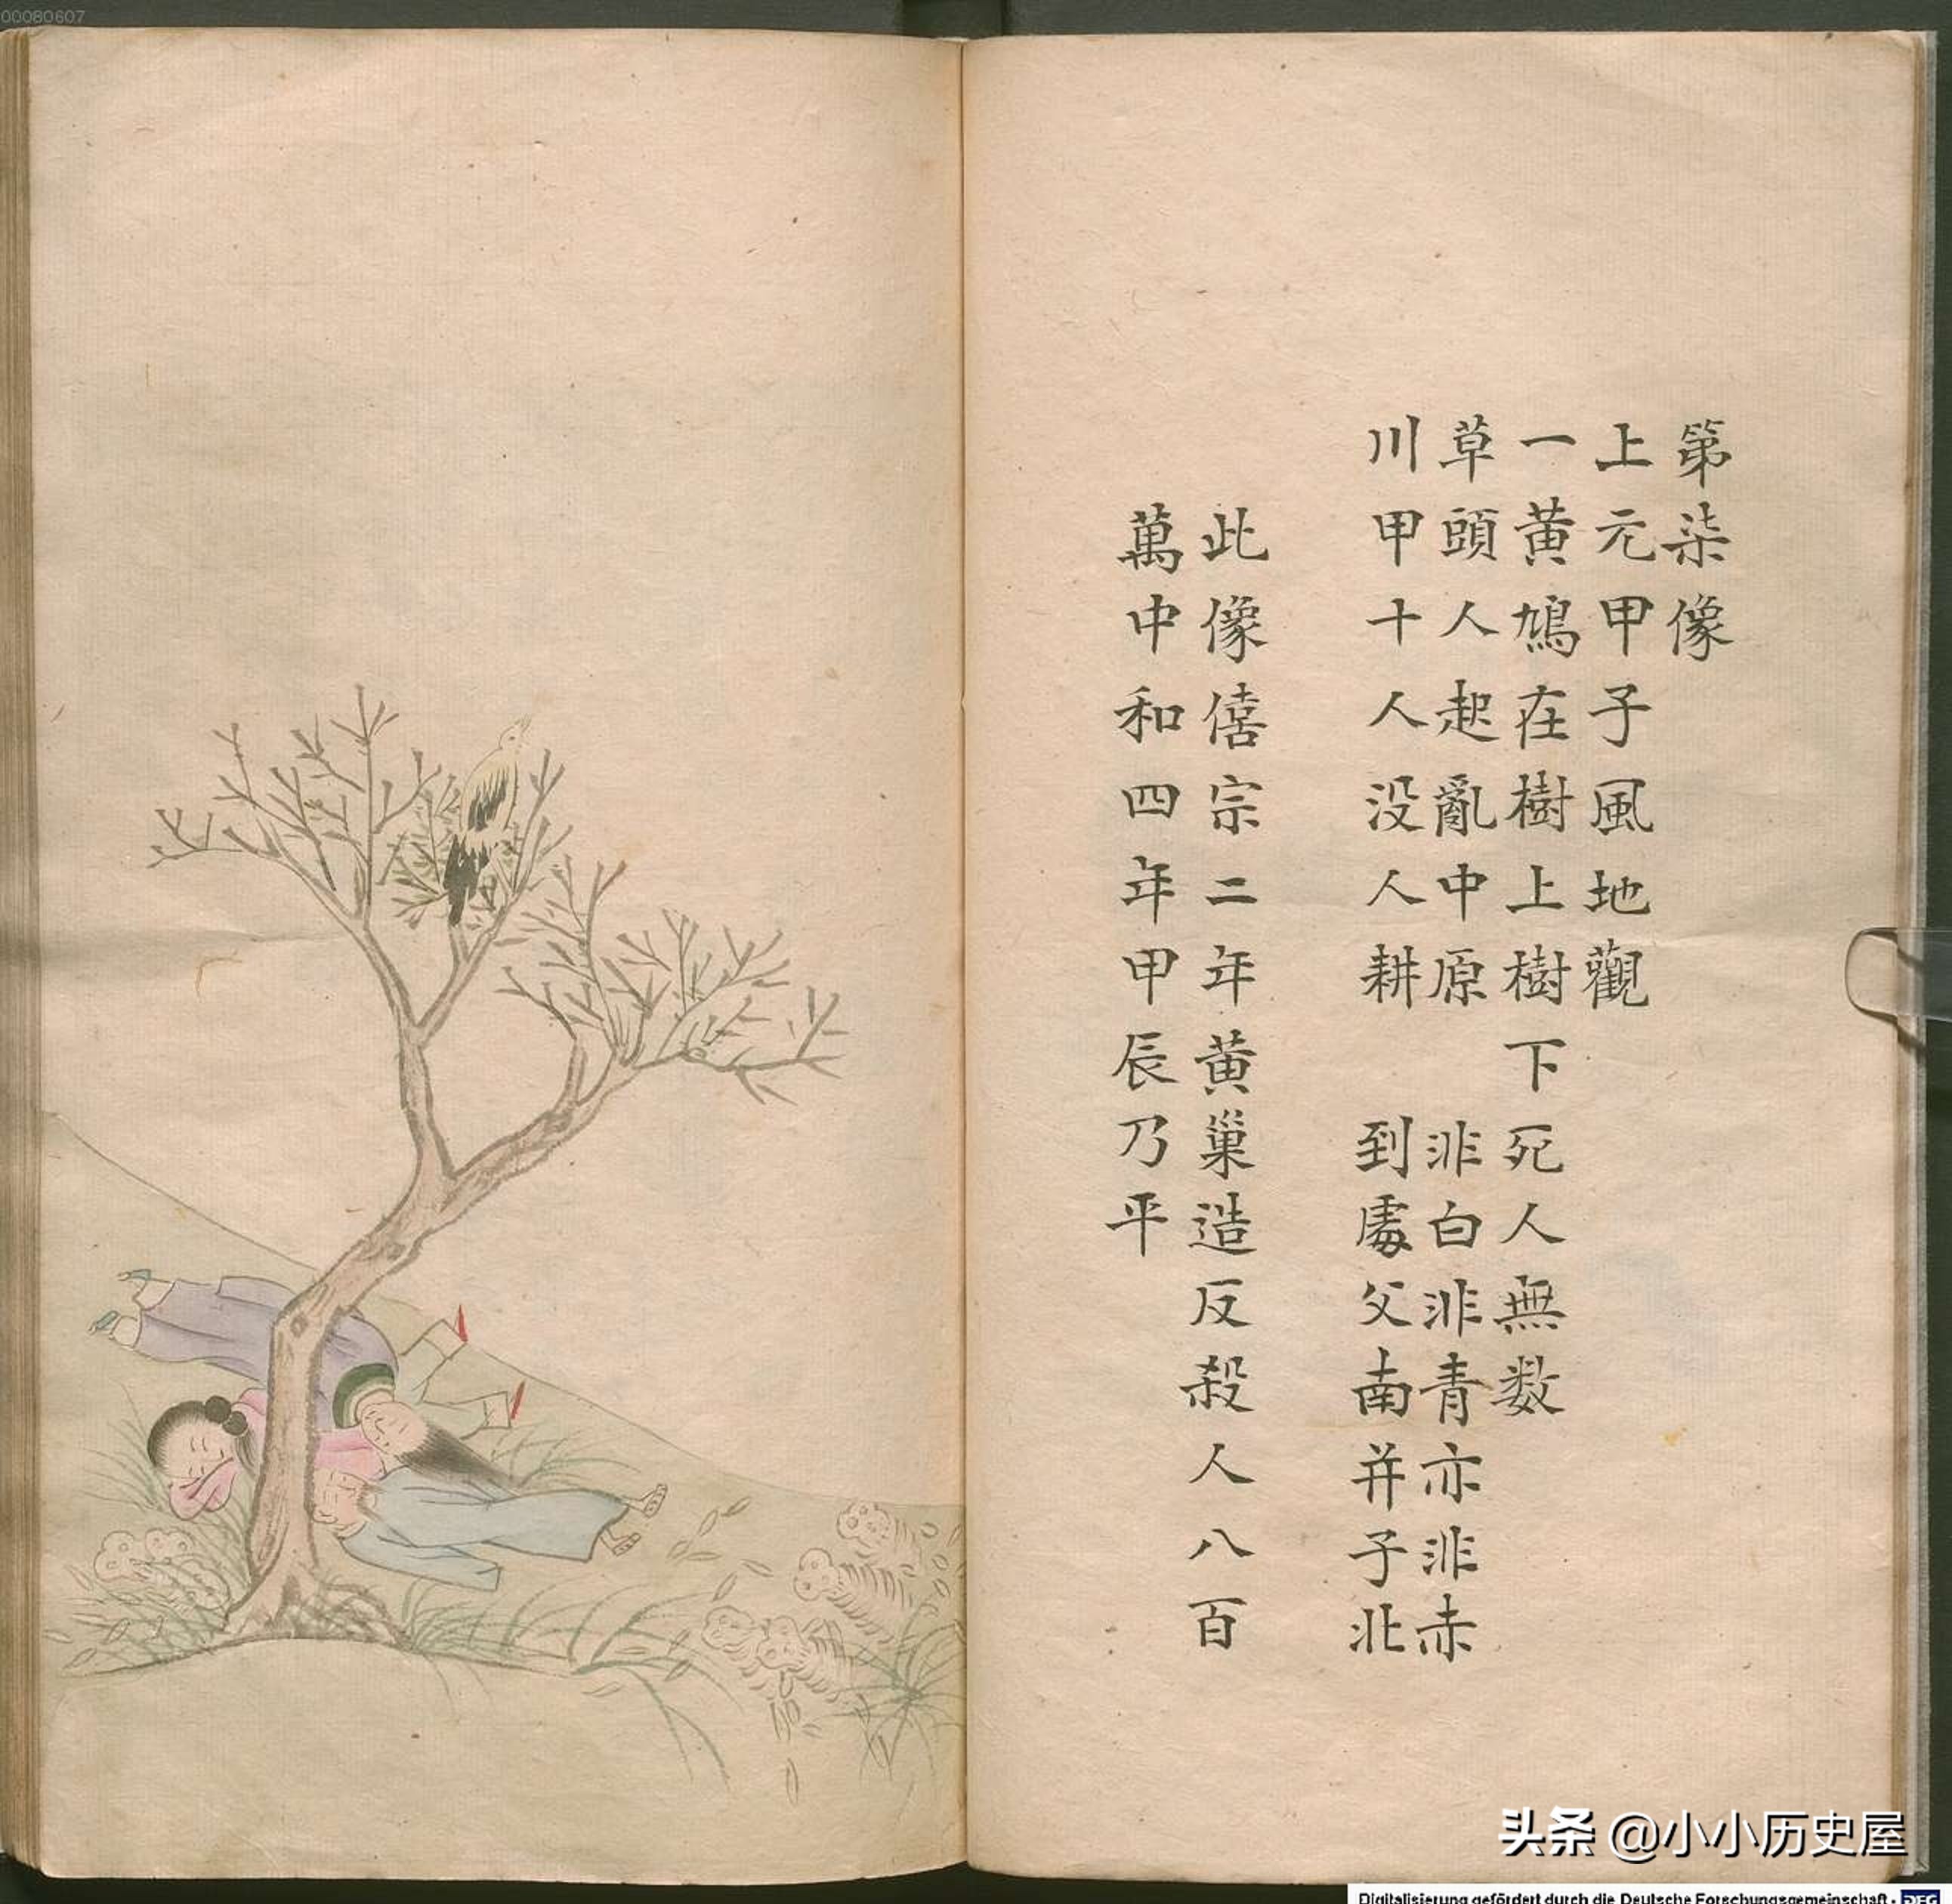 00080607
第柒像
上元甲子風地觀
一黃鴆在樹上樹下死人無数
草頭人起亂中原 非白非青亦非赤
川甲十人没人耕 到處父南并子北
此像僖宗二年黃巢造反殺人八百
萬中和四年甲辰乃平
头条 @小小历史屋
Digitalisierung gefördert durch die Deutsche Forschungsgemeinschaft - DFG